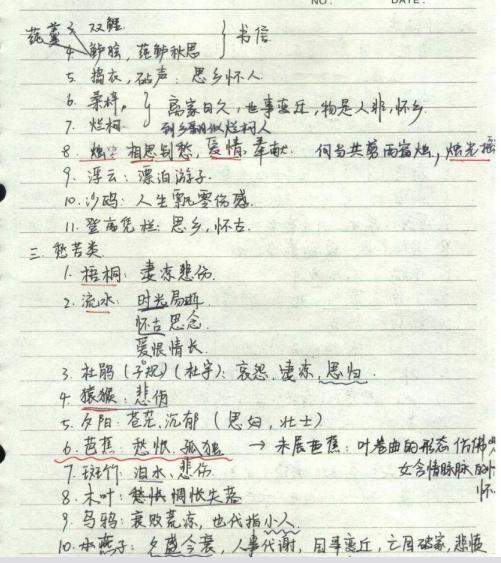 NO. DATE.
莼羹 3. 双鲤
4. 鲈脍, 莼鲈秋思 } 书信
5. 捣衣, 砧声: 思乡怀人.
6. 桑梓,
7. 烂柯 } 离家日久, 世事变迁, 物是人非, 怀乡
到乡翻似烂柯人
8. 烛: 相思别愁, 爱情, 奉献. 何当共剪西窗烛, 烛光摇
9. 浮云: 漂泊游子.
10. 沙鸥: 人生飘零伤感.
11. 登高凭栏: 思乡, 怀古.
三. 愁苦类
1. 梧桐: 凄凉悲伤.
2. 流水: 时光易逝.
怀古思念.
爱恨情长.
3. 杜鹃 (子规) (杜宇): 哀怨, 凄凉, 思归.
4. 猿猴: 悲伤
5. 夕阳: 苍茫, 沉郁 (思妇, 壮士)
6. 芭蕉: 愁恨, 孤独 → 未展芭蕉: 叶卷曲的形态仿佛
7. 斑竹: 泪水, 悲伤. 女含情脉脉的
8. 木叶: 愁怅惆怅失落 怀
9. 乌鸦: 衰败荒凉, 也代指小人.
10. 燕子: 夕盛今衰, 人事代谢, 国事变迁, 亡国破家, 悲愤